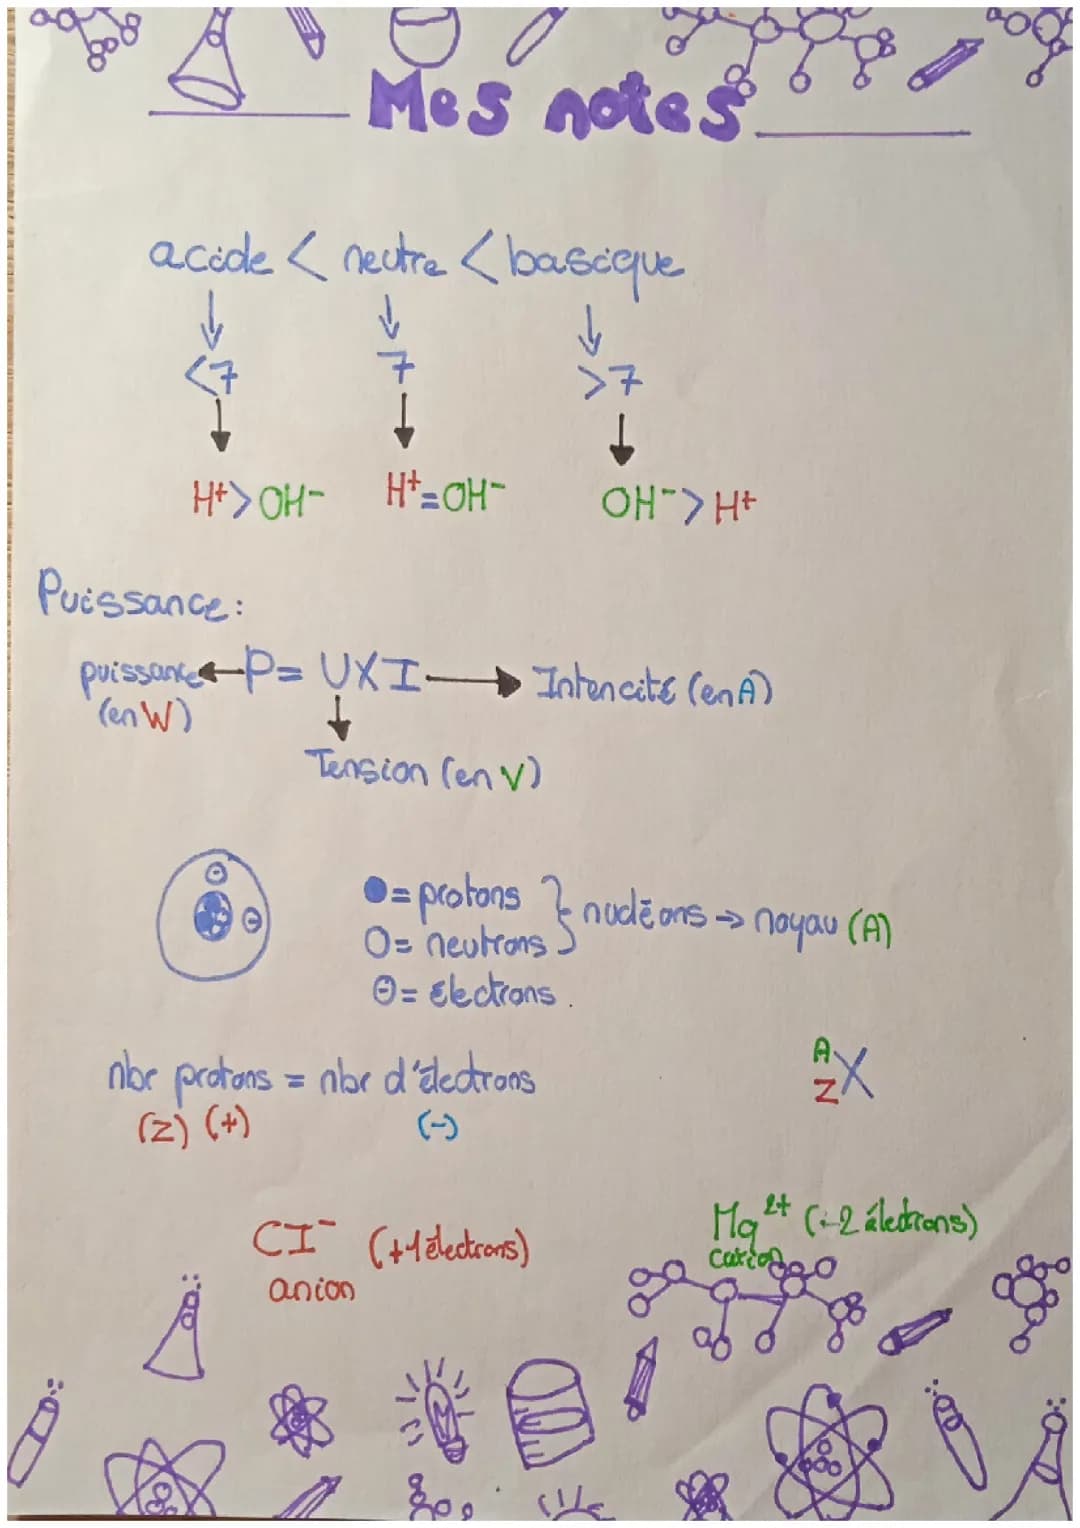 Mes notes
acide < neutre < basique
<7 7 >7
H+ > OH- H+ = OH- OH- > H+
Puissance :
puissance P = U X I Intencité (en A)
(en W)
Tension (en V)
= protons
nucléons → noyau (A)
= neutrons
⊖ = électrons.
nbr protons = nbr d'électrons
(Z) (+) (-)
A
Z X
Cl- (+1 électrons)
anion
Mg 2+ (-2 électrons)
cation